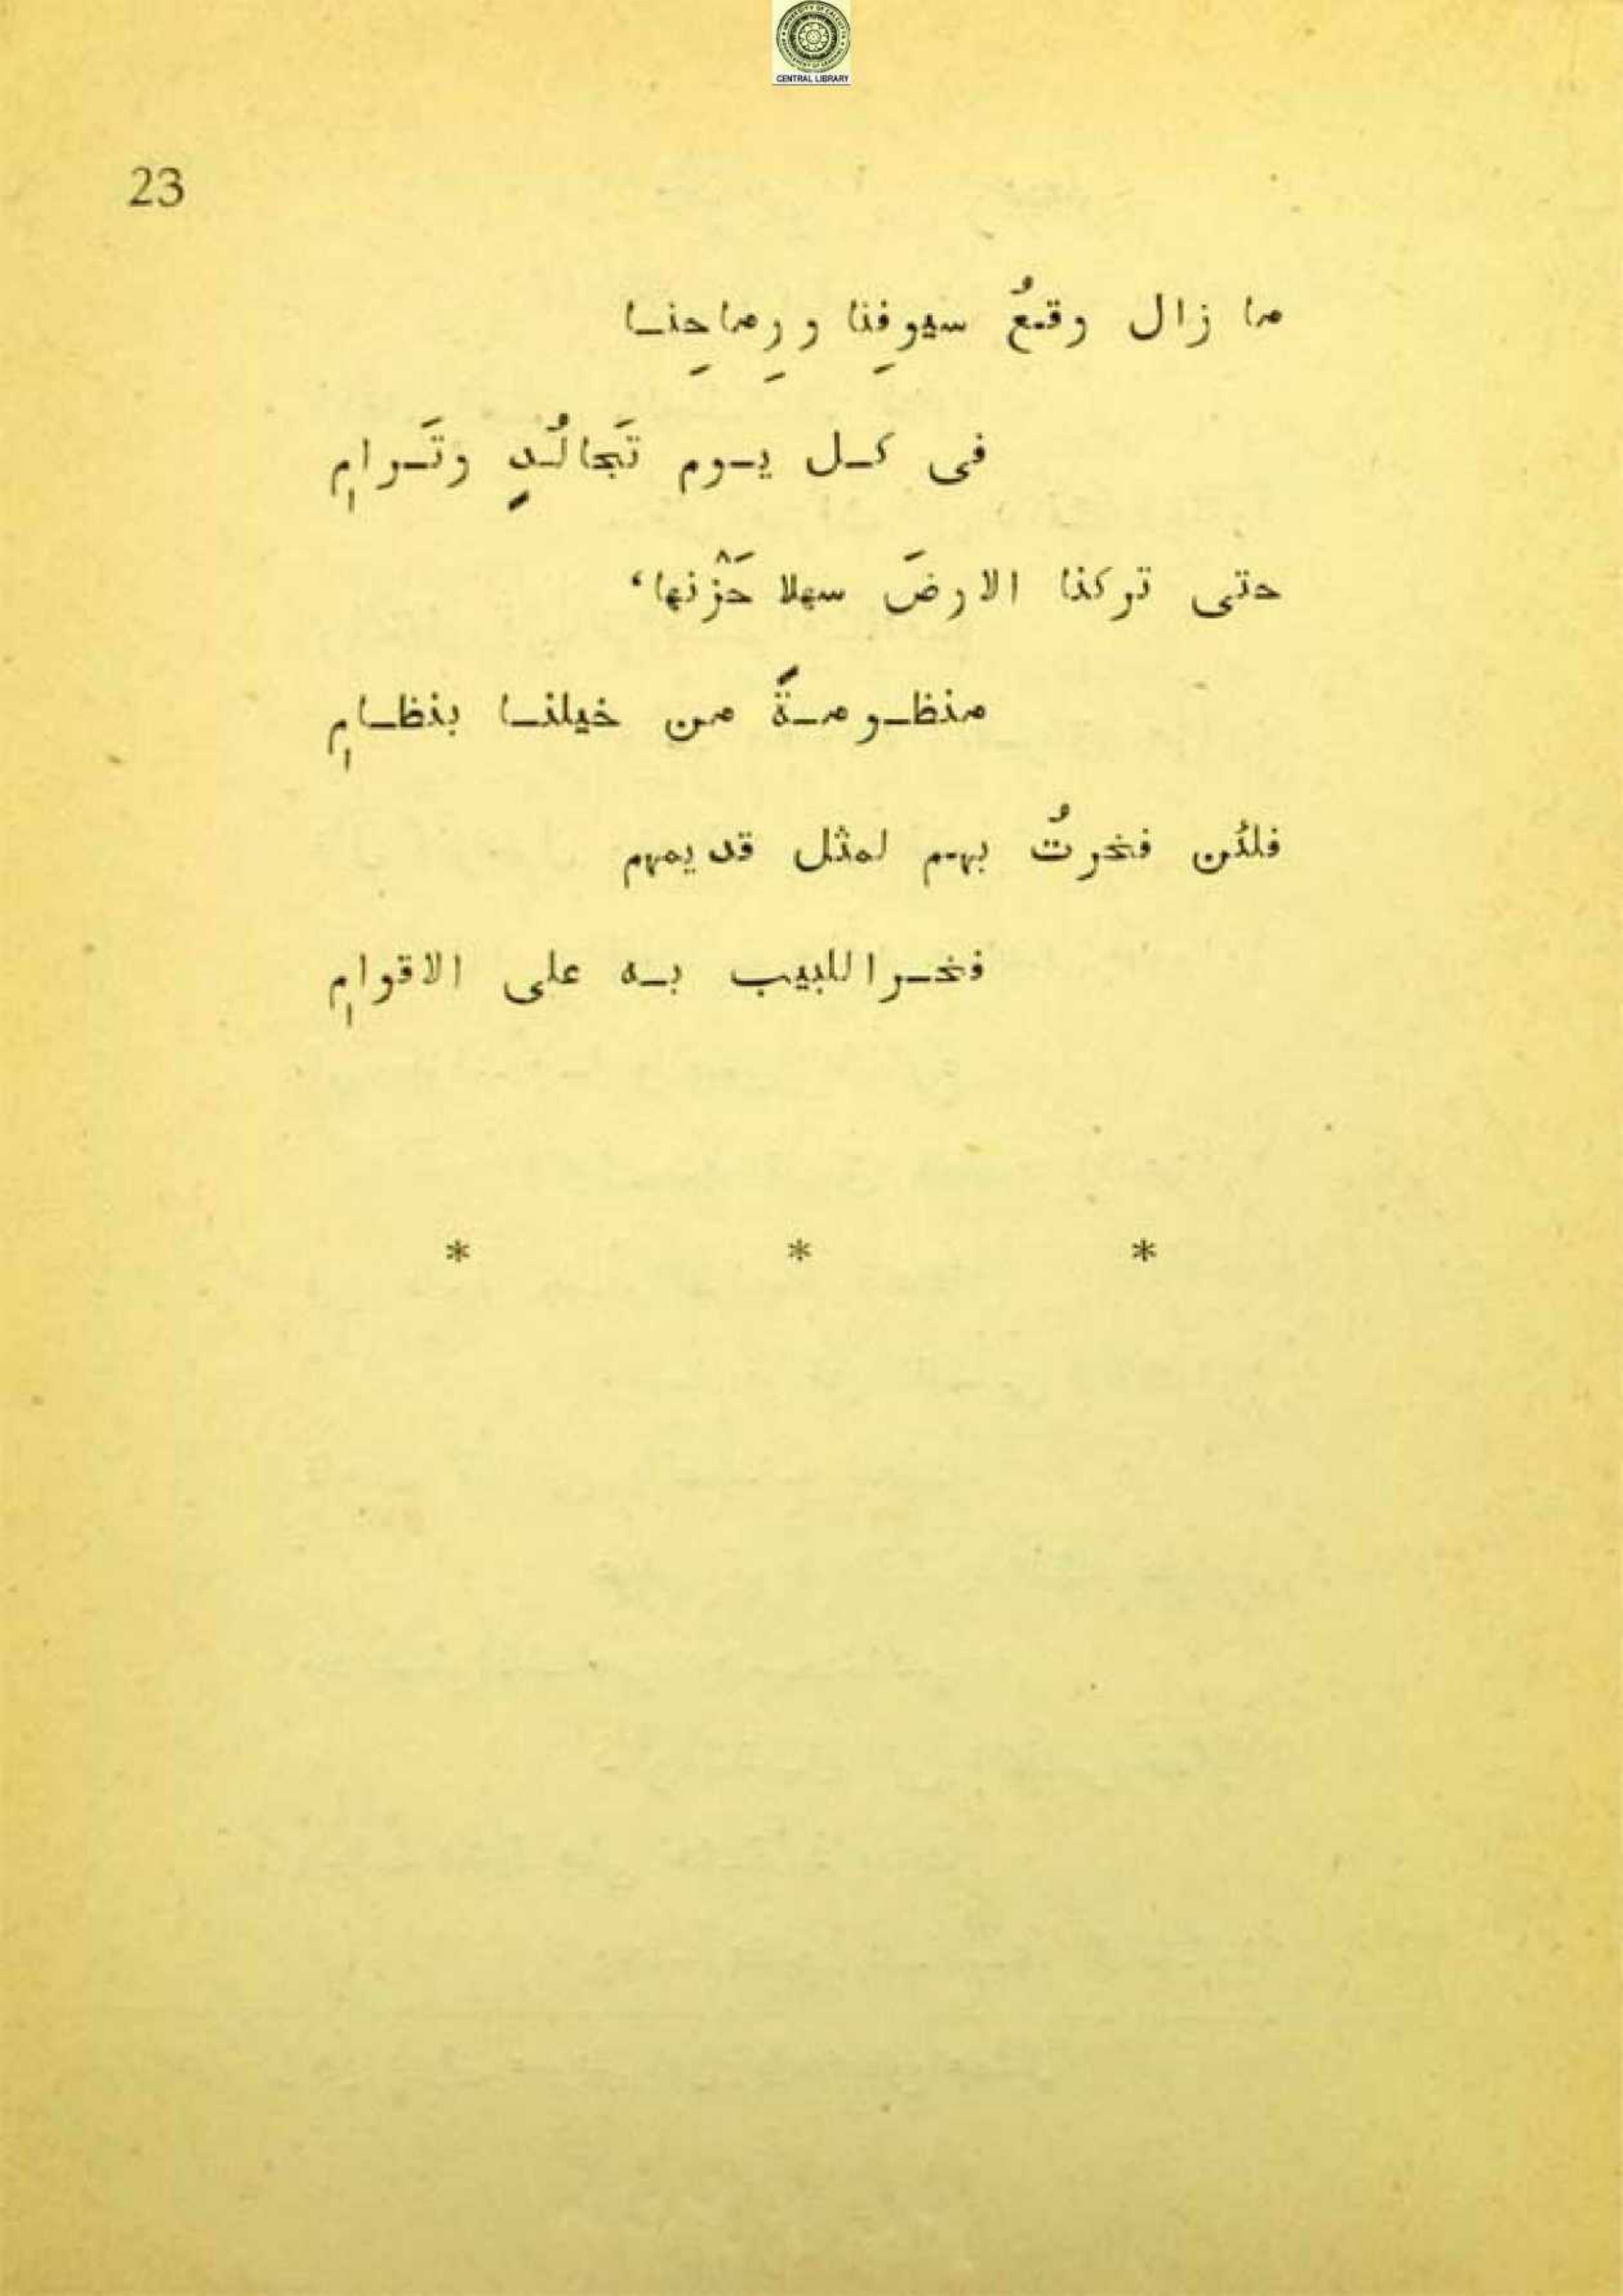 CENTRAL LIBRARY
23
ما زال وقعُ سيوفِنا ورِماحِنا
فى كل يوم تَجالُدٍ وتَرامِ
حتى تركنا الارضَ سهلا حَزْنها،
منظومةً من خيلنا بنظامِ
فلئن فخرتُ بهم لمثل قديمهم
فخر اللبيب به على الاقوامِ
* * *